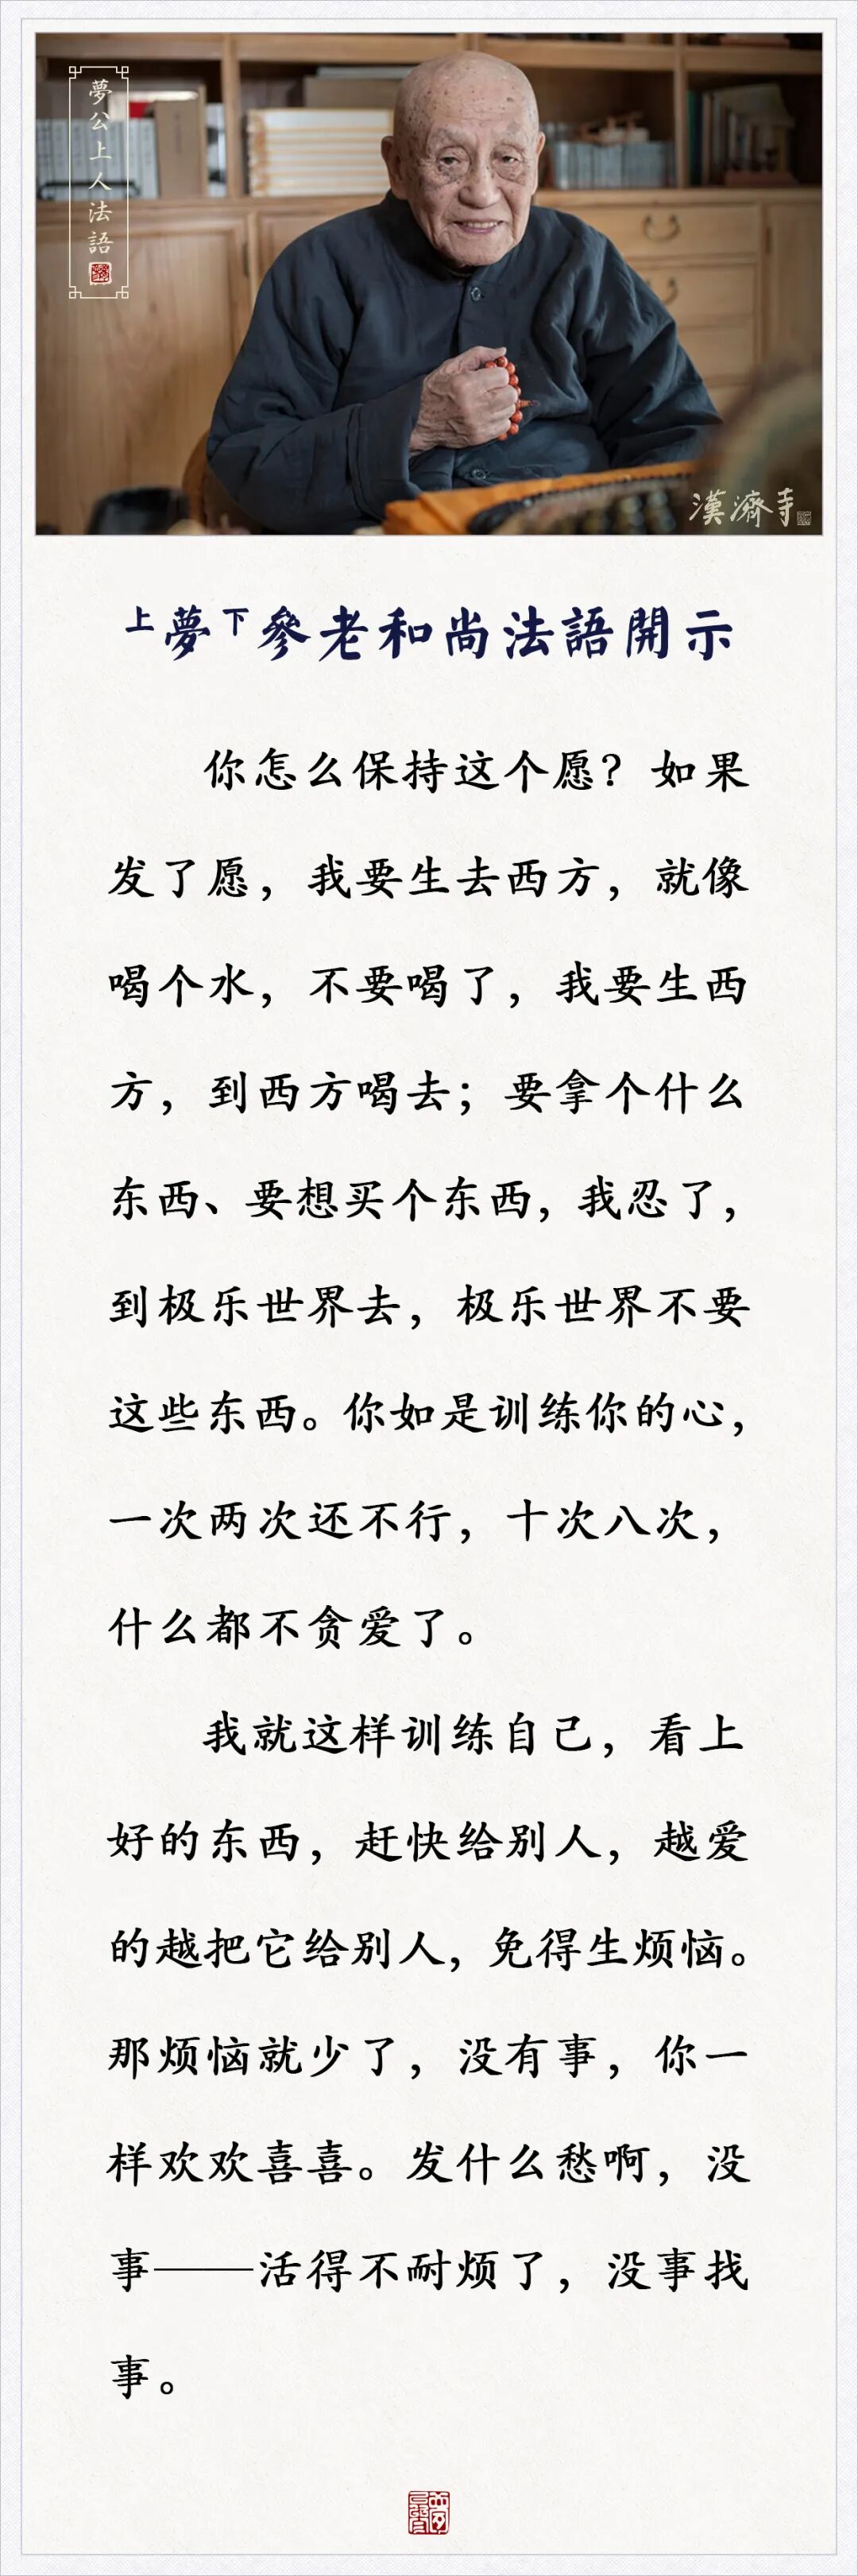 夢公上人法語
漢濟寺
上夢下參老和尚法語開示
你怎么保持这个愿？如果
发了愿，我要生去西方，就像
喝个水，不要喝了，我要生西
方，到西方喝去；要拿个什么
东西、要想买个东西，我忍了，
到极乐世界去，极乐世界不要
这些东西。你如是训练你的心，
一次两次还不行，十次八次，
什么都不贪爱了。
我就这样训练自己，看上
好的东西，赶快给别人，越爱
的越把它给别人，免得生烦恼。
那烦恼就少了，没有事，你一
样欢欢喜喜。发什么愁啊，没
事——活得不耐烦了，没事找
事。